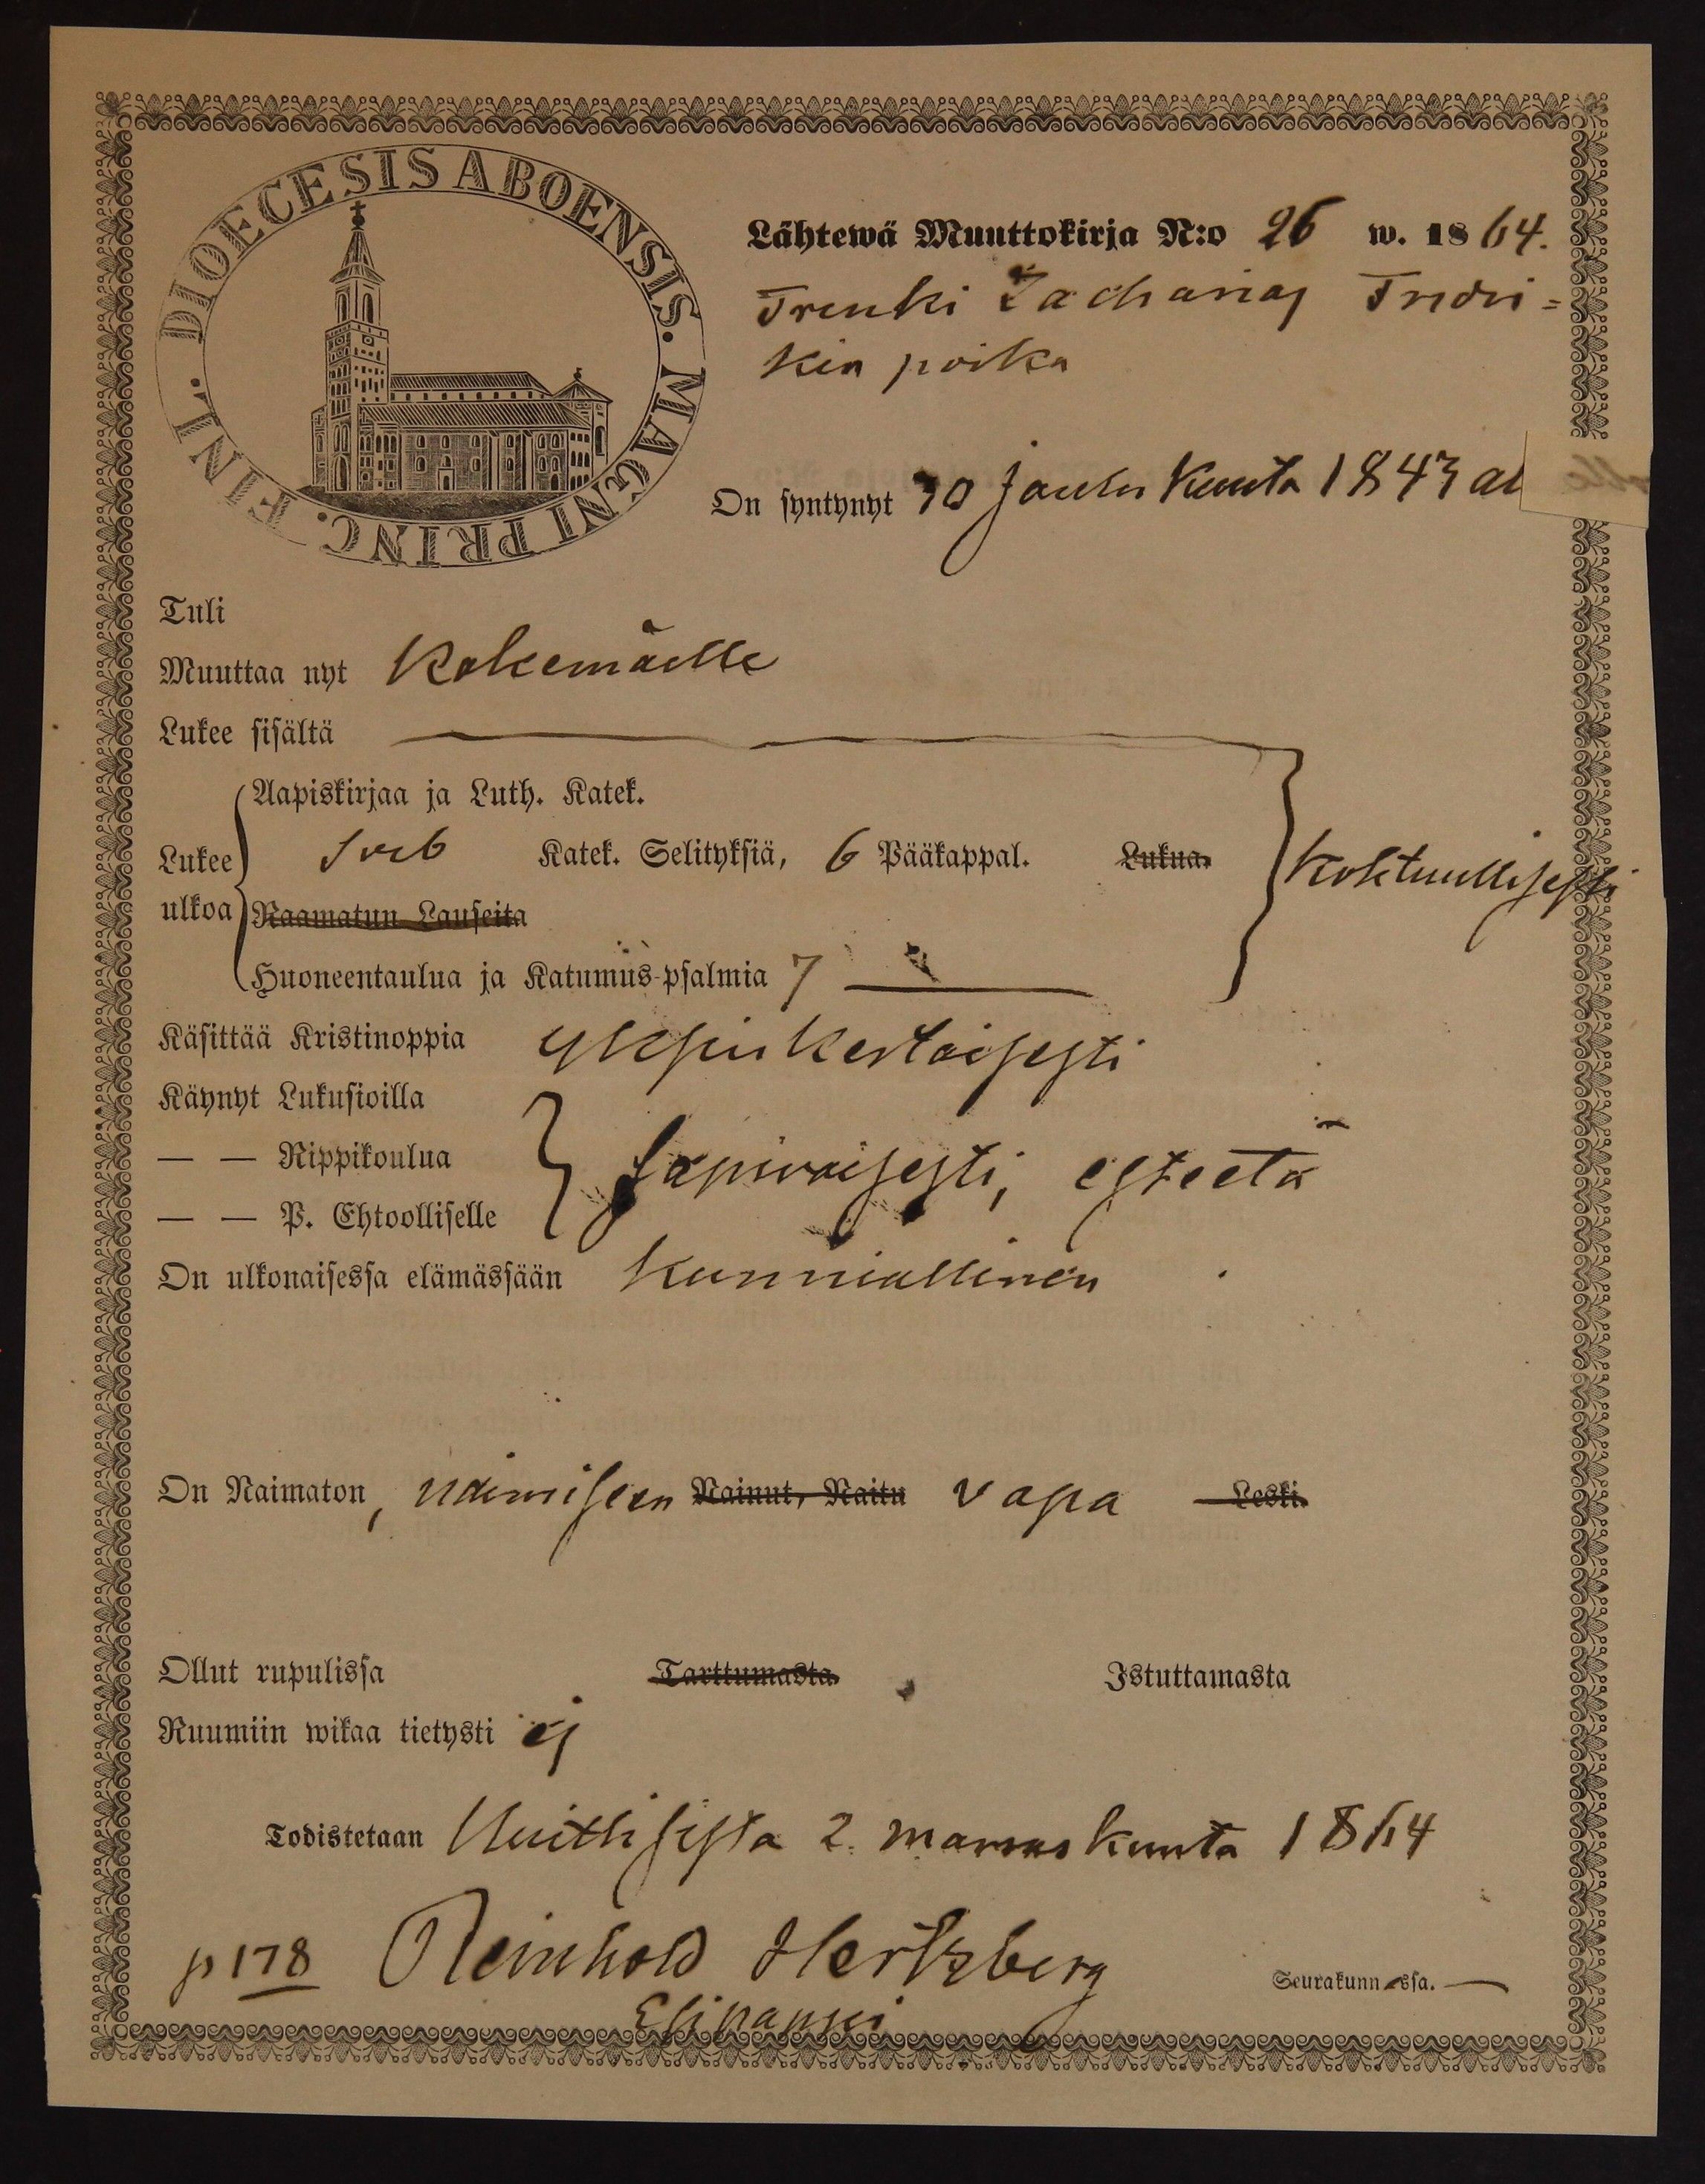 DIOECESIS ABOENSIS. MAGNI PRINC. FINL.
Lähtewä Muuttokirja N:o 26 w. 1864.
Trenki Zacharias Fridri=
kin poika
On syntynyt 30 joulu kuuta 1843 al
Tuli
Muuttaa nyt Kokemäelle
Lukee sisältä
Aapiskirjaa ja Luth. Katek.
Lukee ulkoa Sveb Katek. Selityksiä, 6 Pääkappal. Lukua.
Kohtuullisesti
Raamatun Lauseita
Huoneentaulua ja Katumus-psalmia 7
Käsittää Kristinoppia yksinkertaisesti
Käynyt Lukusioilla
— — Rippikoulua Lapivaisesti, esteetä
— — P. Ehtoolliselle
On ulkonaisessa elämässään kunniallinen
On Naimaton, naimiseen Nainut, Naitu vapa Leski.
Ollut rupulissa Tarttumasta. Istuttamasta
Ruumiin wikaa tietysti ej
Todistetaan Huittisista 2. marras kuuta 1864
p 178 Reinhold Hertzberg Seurakunnassa.
Esipappi